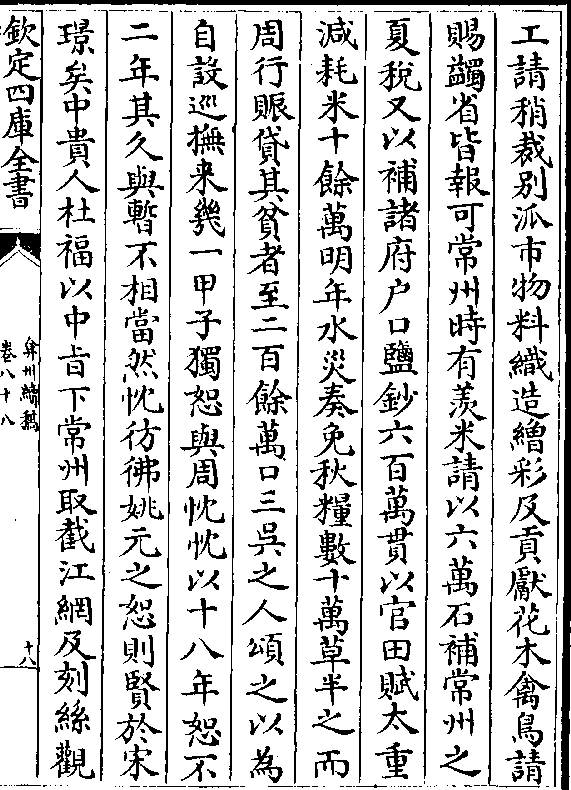 工請稍裁別派市物料織造繒彩及貢獻花木禽鳥請
賜蠲省皆報可常州時有羨米請以六萬石補常州之
夏稅又以補諸府户口鹽鈔六百萬貫以官田賦太重
減耗米十餘萬明年水災奏免秋糧數十萬草半之而
周行賑貸其貧者至二百餘萬口三吳之人頌之以為
自設巡撫來幾一甲子獨恕與周忱忱以十八年恕不
二年其久與暫不相當然忱彷彿姚元之恕則賢於宋
璟矣中貴人杜福以中㫖下常州取截江網及刻絲觀
欽定四庫全書
弇州續稿
卷八十八
十八